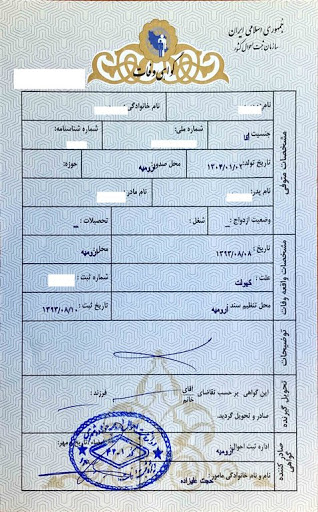 جمهوری اسلامی ایران
سازمان ثبت احوال کشور
گواهی وفات
مشخصات متوفی
نام: نام خانوادگی:
جنسیت: شماره ملی: شماره شناسنامه:
تاریخ تولد: ۱۳۰۴/۰۱/۰۲ محل صدور: ارومیه حوزه:
نام پدر: نام مادر:
وضعیت ازدواج: – شغل: تحصیلات: –
مشخصات واقعه وفات
تاریخ: ۱۳۹۳/۰۸/۰۸ محل: ارومیه
علت: کهولت شماره ثبت:
محل تنظیم سند: ارومیه تاریخ ثبت: ۱۳۹۳/۰۸/۱۰
توضیحات
تحویل گیرنده
این گواهی بر حسب تقاضای آقای خانم فرزند:
صادر و تحویل گردید.
صادر کننده گواهی
اداره ثبت احوال: ارومیه
نام و نام خانوادگی مامور: حجت علیزاده